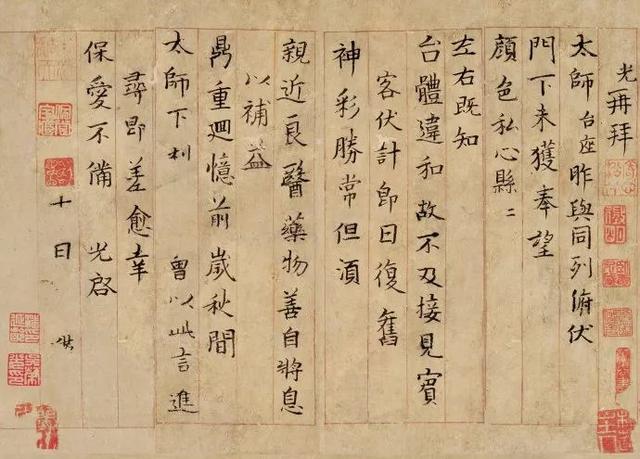 光再拜
太師台座昨與同列俯伏
門下未獲奉望
顏色私心縣〻
左右既知
台體違和故不及接見賓
客伏計即日復舊
神彩勝常但湏
親近良醫藥物善自將息
以補益
鼎重迴憶前歲秋間
太師下利 曾以此言進
尋即差愈幸
保愛不備 光啓
十日